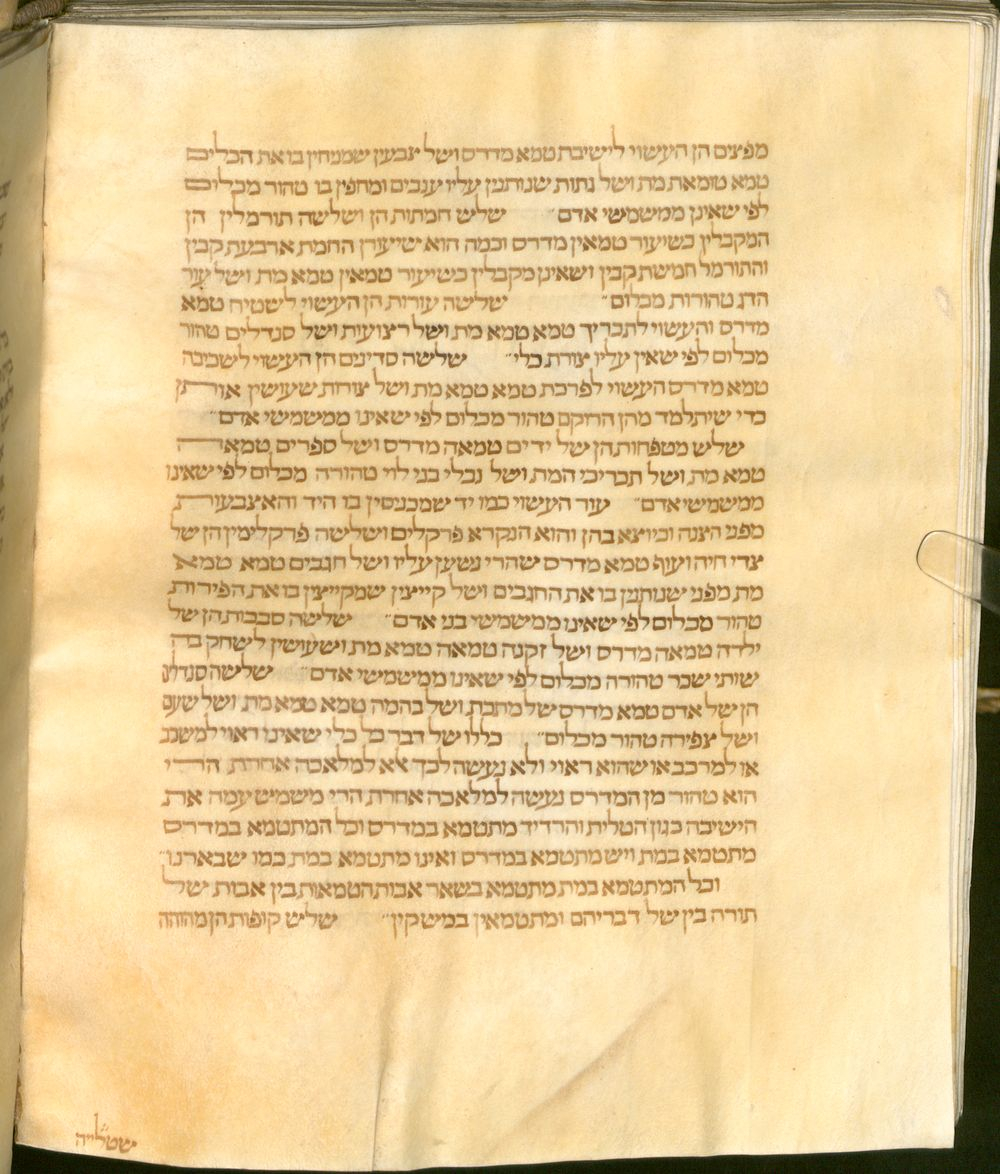 מפצים הן העשוי לישיבת טמא מדרס ושל צבעין שמניחין בו את הכלים
טמא טומאת מת ושל גתות שנותנין עליו ענבים ומחפין בו טהור מכלים
לפי שאינן ממשמשי אדם״ שלש חמתות הן ושלשה תורמלין הן
המקבלין כשיעור טמאין מדרס וכמה הוא שיעורן החמת ארבעת קבין
והתורמל חמשת קבין ושאינן מקבלין כשיעור טמאין טמא מת ושל עור
הדג טהורות מכלום״ שלשה עורות הן העשוי לשטיח טמא
מדרס והעשוי לתכריך טמא טמא מת ושל רצועות ושל סנדלים טהור
מכלום לפי שאין עליו צורת כלי״ שלשה סדינים הן העשוי לשכיבה
טמא מדרס העשוי לפרכת טמא טמא מת ושל צורות שעושין אותן
כדי שיתלמד מהן הרוקם טהור מכלום לפי שאינו ממשמשי אדם״
שלש מטפחות הן של ידים טמאה מדרס ושל ספרים טמאה
טמא מת ושל תכריכי המת ושל נבלי בני לוי טהורה מכלום לפי שאינו
ממשמשי אדם״ עור העשוי כמו יד שמכניסין בו היד והאצבעות
מפני הצנה וכיוצא בהן והוא הנקרא פרקלים ושלשה פרקלימין הן של
צדי חיה ועוף טמא מדרס שהרי נשען עליו ושל חגבים טמא טמא
מת מפני שנותנין בו את החגבים ושל קייצין שמקייצין בו את הפירות
טהור מכלום לפי שאינו ממשמשי בני אדם״ שלשה סבכות הן של
ילדה טמאה מדרס ושל זקנה טמאה טמא מת ושעושין לשחק בה
שותי שכר טהורה מכלום לפי שאינו ממשמשי אדם״ שלשה סנדלין
הן של אדם טמא מדרס של מתכת ושל בהמה טמא טמא מת ושל שעם
ושל צפירה טהור מכלום״ כללו של דבר כל כלי שאינו ראוי למשכב
או למרכב או שהוא ראוי ולא נעשה לכך אלא למלאכה אחרת הרי
הוא טהור מן המדרס נעשה למלאכה אחרת הרי משמיש עמה את
הישיבה כגון הטלית והרדיד מתטמא במדרס וכל המתטמא במדרס
מתטמא במת ויש מתטמא במדרס ואינו מתטמא במת כמו שבארנו״
וכל המתטמא במת מתטמא בשאר אבות הטמאות בין אבות של
תורה בין של דבריהם ומתטמאין במישקין״ שליש קופות הן מהוהה